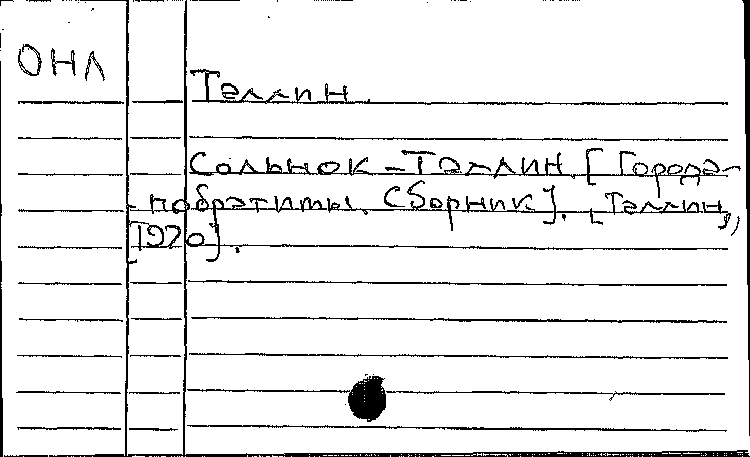 ОНЛ
Таллин.
Сольнок - Таллин. [Города-
-побратимы. Сборник]. [Таллин,
1970].